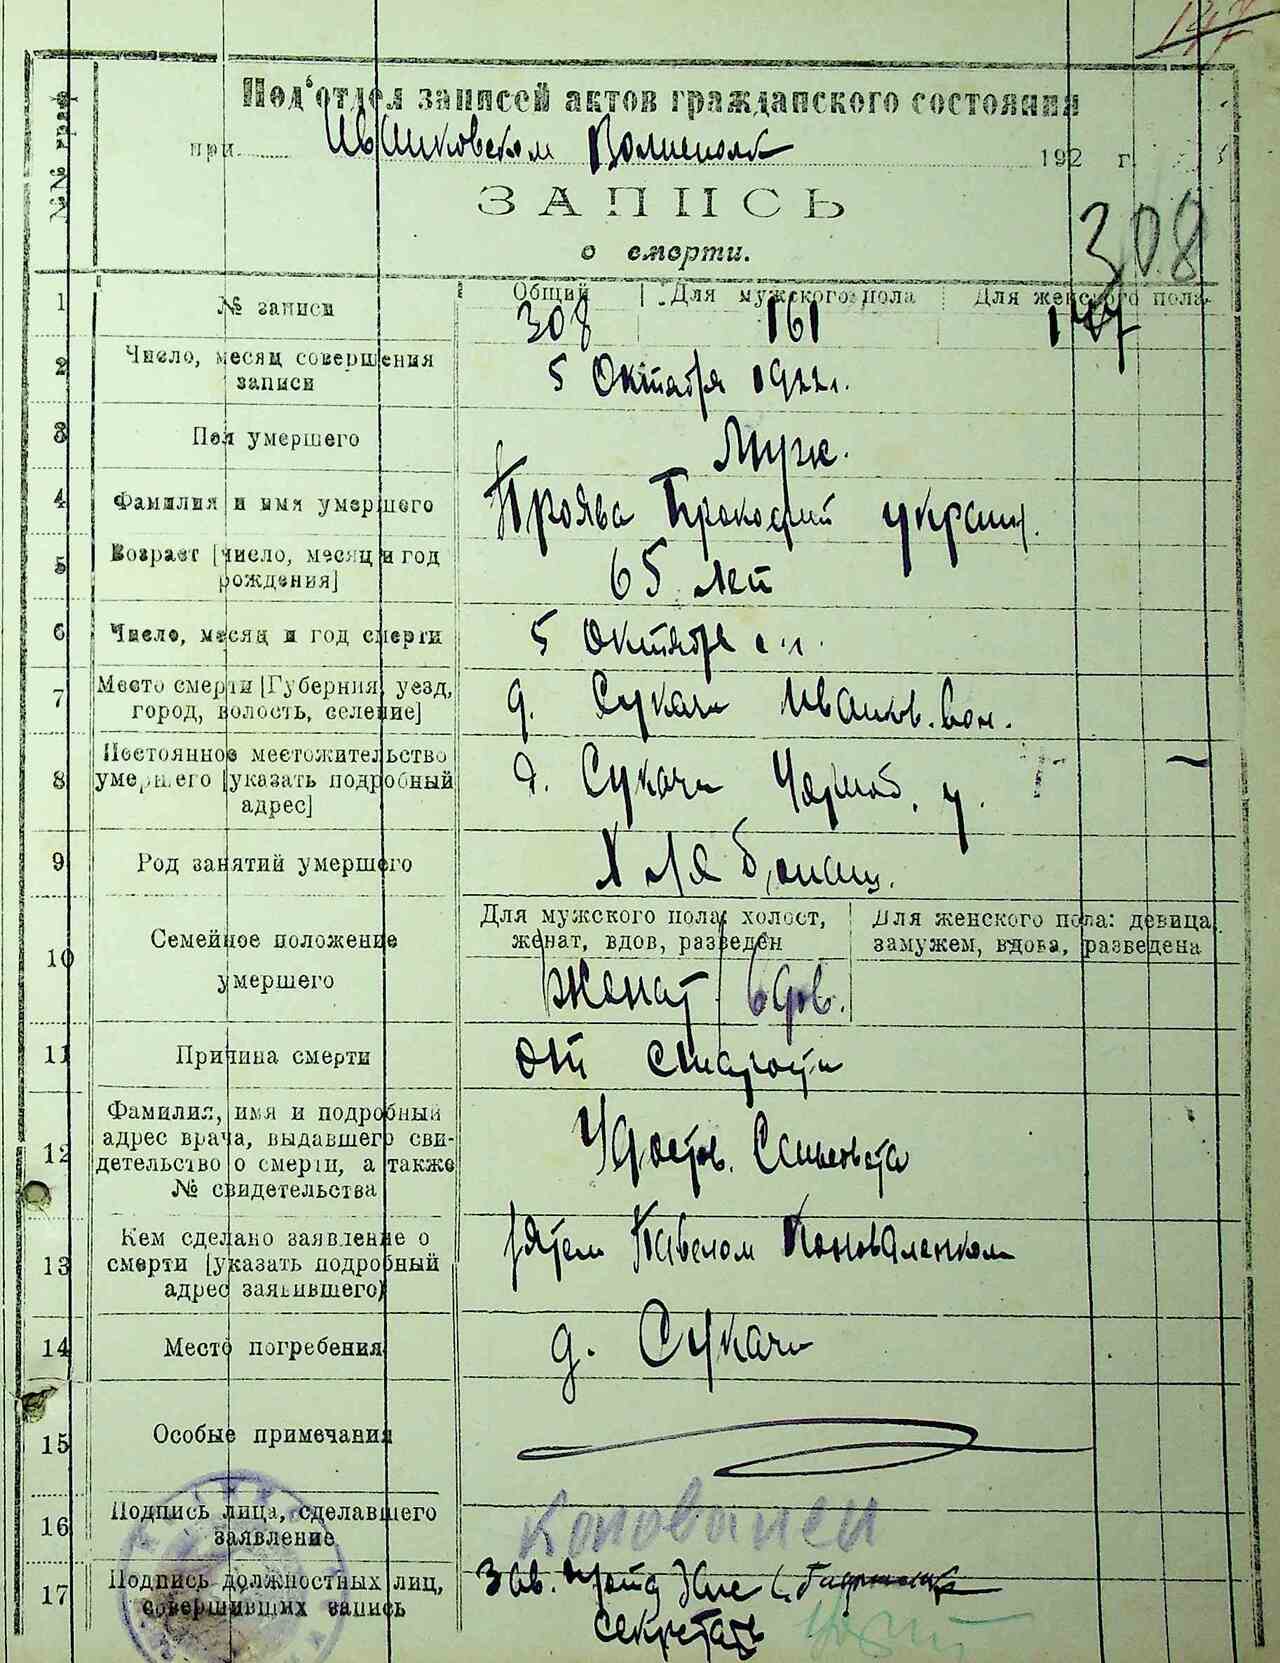 147
№№ граф
Под'отдел записей актов гражданского состояния
при Иванковском Волисполк 192 г.
ЗАПИСЬ
о смерти.
308
1 № записи Общий Для мужского пола Для женского пола
308 161 147
2 Число, месяц совершения записи
5 Октября 1922 г.
3 Пол умершего
Муж.
4 Фамилия и имя умершего
Проява Прокофий украин.
5 Возраст [число, месяц и год рождения]
65 лет
6 Число, месяц и год смерти
5 Октября с.г.
7 Место смерти [Губерния, уезд, город, волость, селение]
д. Сукачи Иванков. вол.
8 Постоянное местожительство умершего [указать подробный адрес]
д. Сукачи Черноб. у.
9 Род занятий умершего
Хлябопаш.
10 Семейное положение умершего
Для мужского пола: холост, женат, вдов, разведен
Для женского пола: девица, замужем, вдова, разведена
Женат вдов.
11 Причина смерти
от старости
12 Фамилия, имя и подробный адрес врача, выдавшего свидетельство о смерти, а также № свидетельства
Удостов. Сельсовета
13 Кем сделано заявление о смерти [указать подробный адрес заявившего]
зятем Павелом Коноваленком
14 Место погребения
д. Сукачи
15 Особые примечания
16 Подпись лица, сделавшего заявление
Коновален
17 Подпись должностных лиц, совершивших запись
Зав.
секретарь